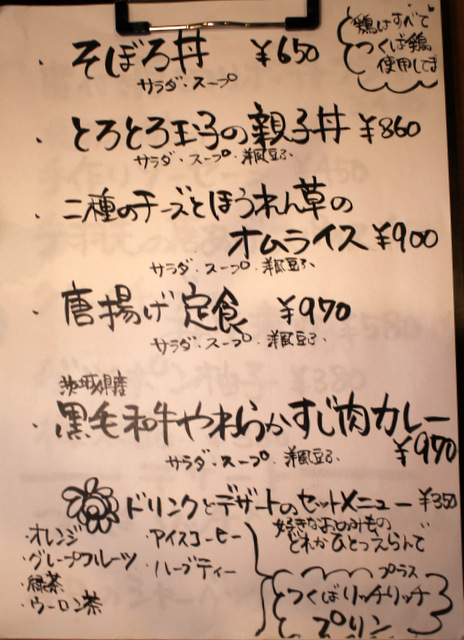 鶏はすべて
つくば鶏
使用してます
・そぼろ丼 ¥650
サラダ・スープ
・とろとろ玉子の親子丼 ¥860
サラダ・スープ・洋風豆ふ
・二種のチーズとほうれん草の
オムライス ¥900
サラダ・スープ・洋風豆ふ
・唐揚げ定食 ¥970
サラダ・スープ・洋風豆ふ
茨城県産
・黒毛和牛やわらかすじ肉カレー
¥970
サラダ・スープ 洋風豆ふ
ドリンクとデザートのセットメニュー ¥350
・オレンジ
・グレープフルーツ
・緑茶
・ウーロン茶
・アイスコーヒー
・ハーブティー
好きなおのみもの
どれかひとつえらんで
プラス
つくばリッチリッチ
プリン